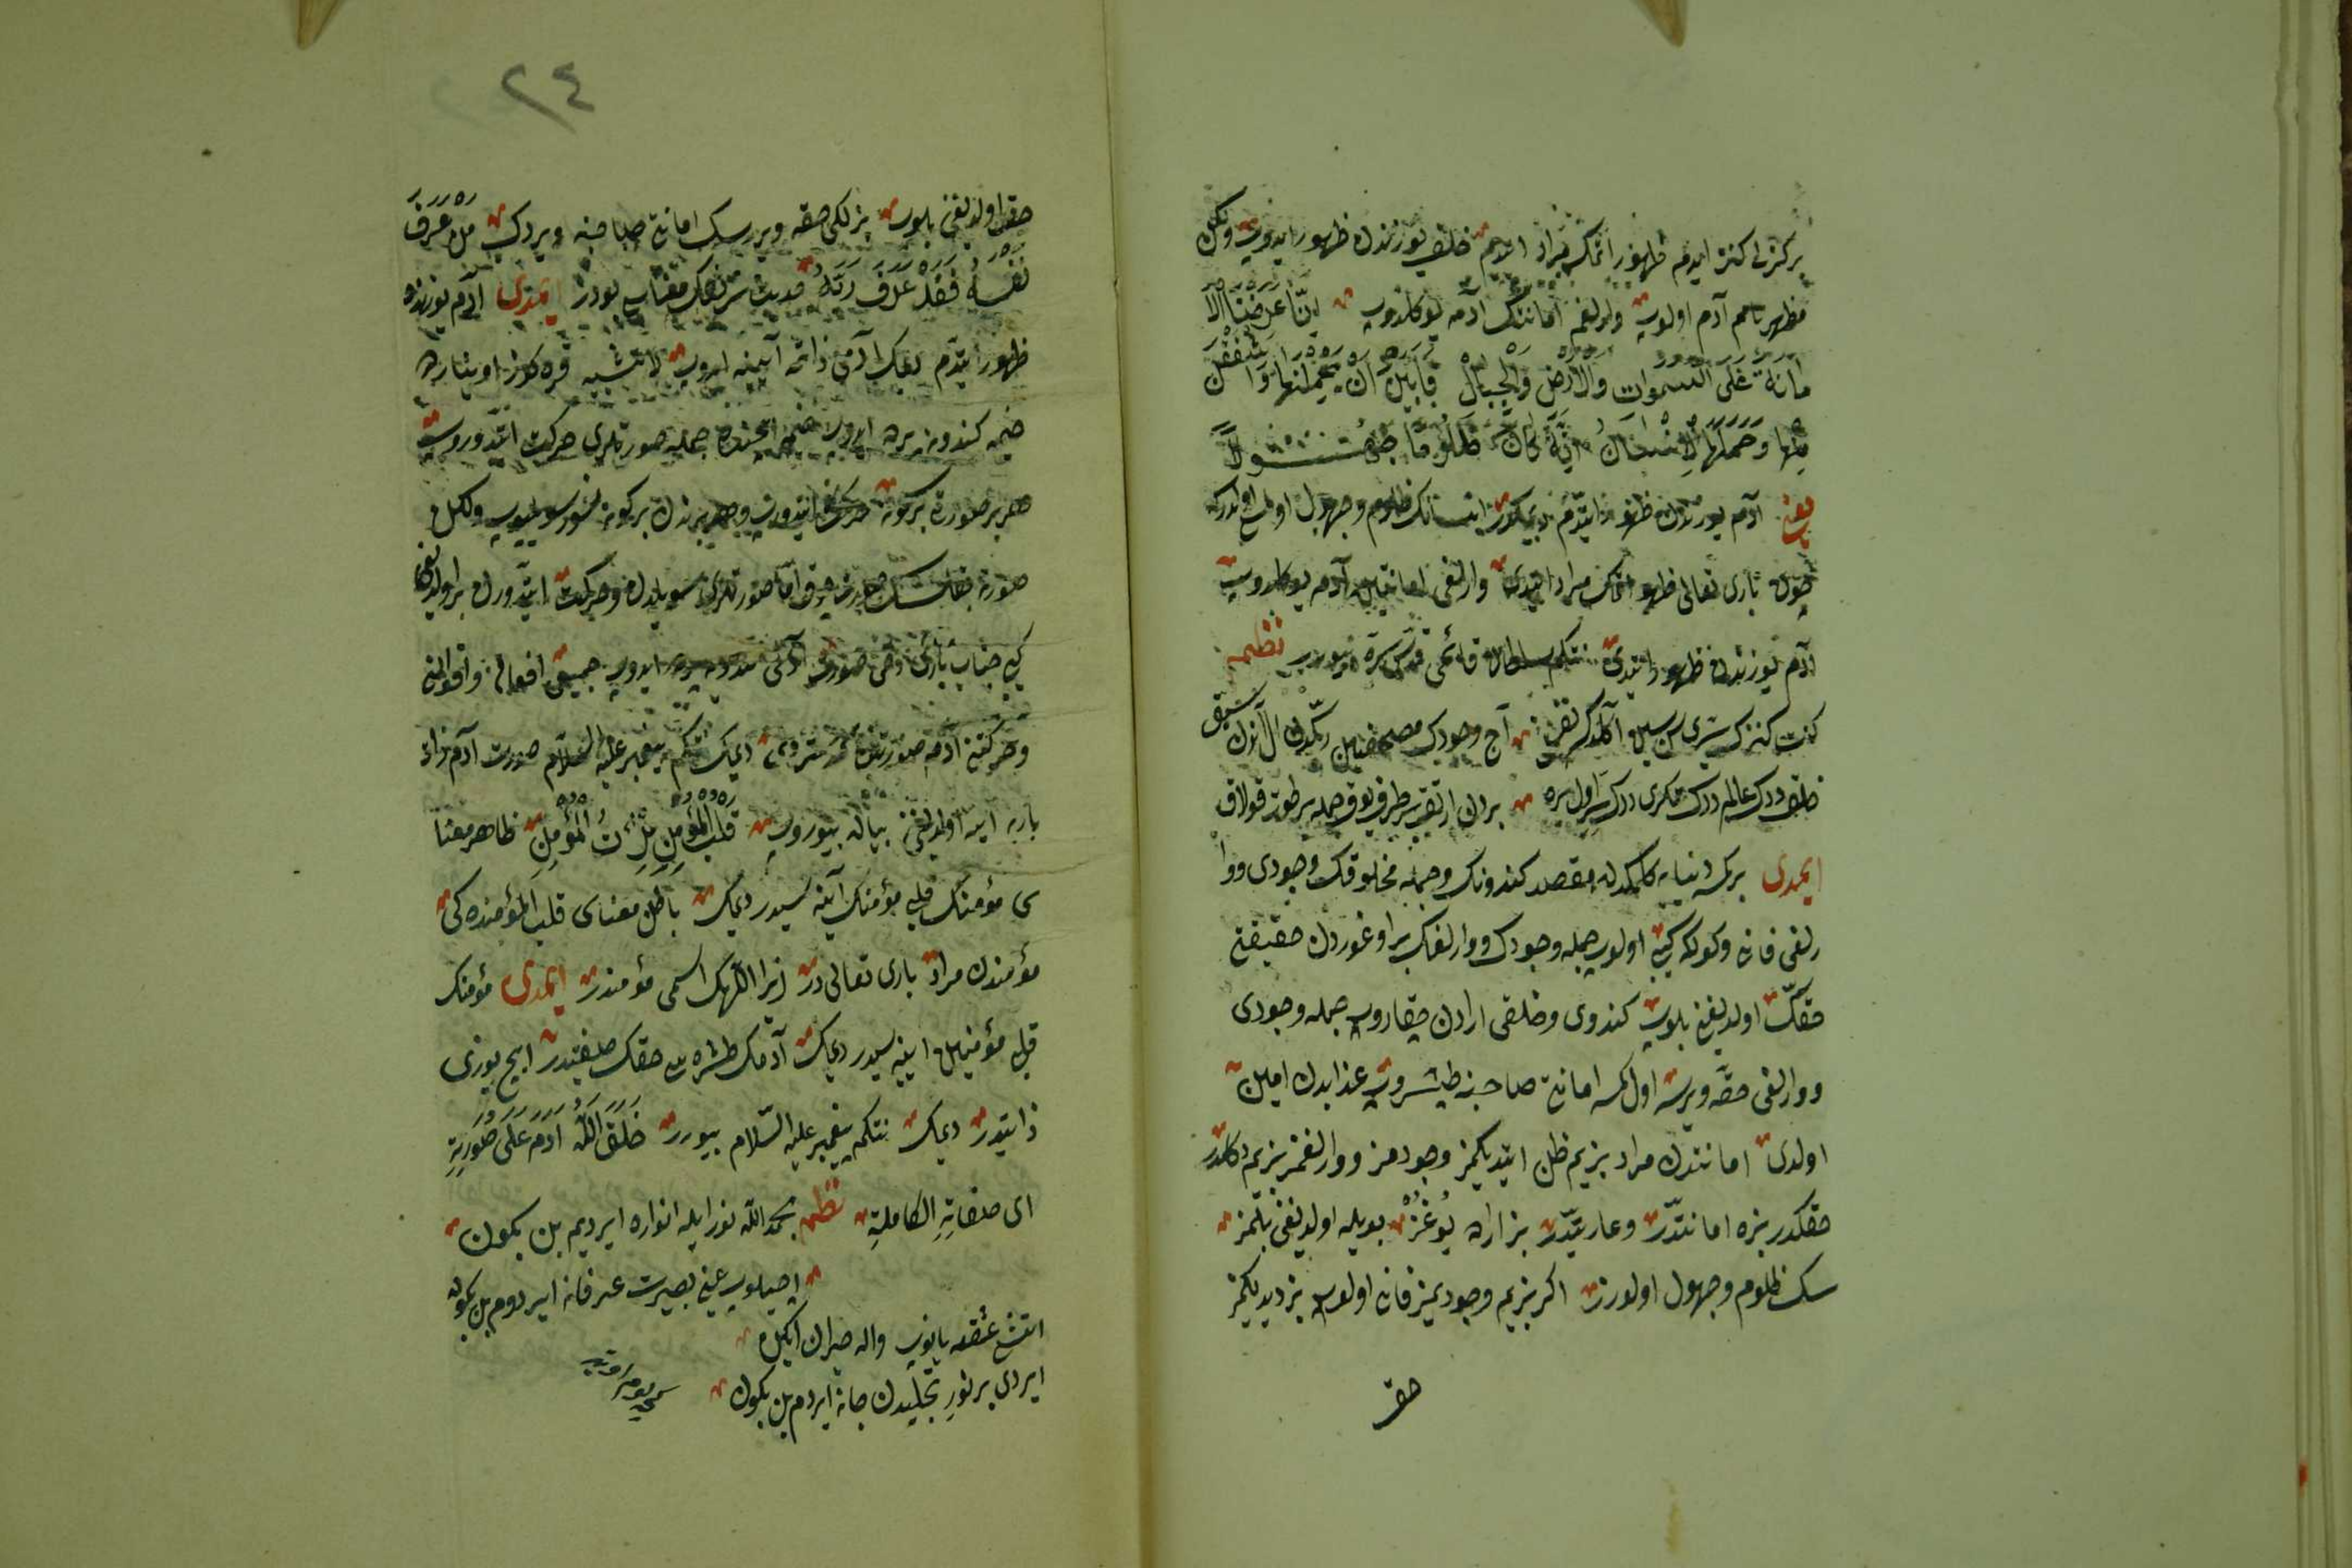 بر کزلی کنز ایدم ظهور اتمک مراد ایدم خلق یوزندن ظهور ایدوب ولکن
مظهر تامم آدم اولوب وارلغم امانتنک آدمه یوکلدوب إنّا عرضنا الأ
مانة على السموات والأرض والجبال فأبين أن يحملنها وأشفقن
منها وحملها الإنسان إنه كان ظلوما جهولا
یعنی آدم یوزندن ظهور ایتدم دیمکدر انسانک ظلوم وجهول اولمسی اولدرکه
چون باری تعالی ظهور اتمک مراد ایتدی وارلغی امانتین آدمه یوکلدوب
آدم یوزندن ظهور ایتدی نتکم سلطان قائمی قدس سره بیورر نظم
کنت کنزک سرّی سن سین آکلدک آج وجودک مصحفندن
خلق ددک عالم ددک تکری ددک اول بره بردن ارتق بر طرف یوق جمله بر طوت قولاق
ایمدی بر کمسه دنیایه کلمکدن مقصد کندونک وجمله مخلوقک وجودی ووا
رلغی فانی وکولکه کبی اولوب جمله وجودک ووارلغک براوغوردن حقیقتی
حقک اولدیغن بلوب کندوی وخلقی ارادن چیقاروب جمله وجودی
ووارلغی حقّه ویرسه اول کمسه امانتی صاحبنه طپشروب عذابدن امین
اولدی امانتدن مراد بزیم ظن ایتدیکمز وجودمز ووارلغمز بزیم دکلدر
حقکدر بزه امانتدر وعاریتدر بز اراده یوغز بویله اولدیغن بلمز
سک ظلوم وجهول اولورز اکر بزیم وجودیمز فانی اولوب بز دیدیکمز
حق
٢٤
حق اولدیغن بلوب بزلکی حقه ویررسک امانتی صاحبنه ویردک من عرف
نفسه فقد عرف ربّه حدیث شریفک معناسی بودر ایمدی آدم یوزندن
ظهور ایتدم دیمک آدمی ذاتمه آیینه ایدوب لا تشبیه قره کوز اویناتان
خیمه کندونه پرده ایدوب خیمه ایچنده جمله صورتلری حرکت ایتدوروب
هر بر صورتی بر کونه حرکت ایتدوروب وهر بریندن بر کونه سوز سویلیوب ولکن
صورة خلق اما صورتلری سویلدن وحرکت ایتدورن بر اولدیغی
کبی جناب باری دخی صورت آدمی کندونه پرده ایدوب جمیع افعالن واقوالنی
وحرکتنی آدم صورتندن کوستردی دیمک نتکم پیغمبر علیه السلام صورت آدم ذات
باریه آیینه اولدیغن بیان بیوروب قلب المؤمن مرآت المؤمن ظاهر معنا
سی مؤمنک قلبی مؤمنک آیینه سیدر دیمک باطن معناسی قلب المؤمنده کی
مؤمندن مراد باری تعالی در زیرا اللهک اسمی مؤمندر ایمدی مؤمنک
قلبی مؤمنین آیینه سیدر دیمک آدمک طشره سی حقک صفتیدر ایچ یوزی
ذاتیدر دیمک نتکم پیغمبر علیه السلام بیورر خلق الله آدم على صورته
ای صفاته الکاملة نظم بحمد الله نور ایله انواره ایردیم بن بکون
اچیلوب عینی بصیرت عرفانه ایردم بن بکون
اتش عشقه یانوب واله حیران ایکن
ایردی بر نور تجلیدن جانه ایردم بن بکون